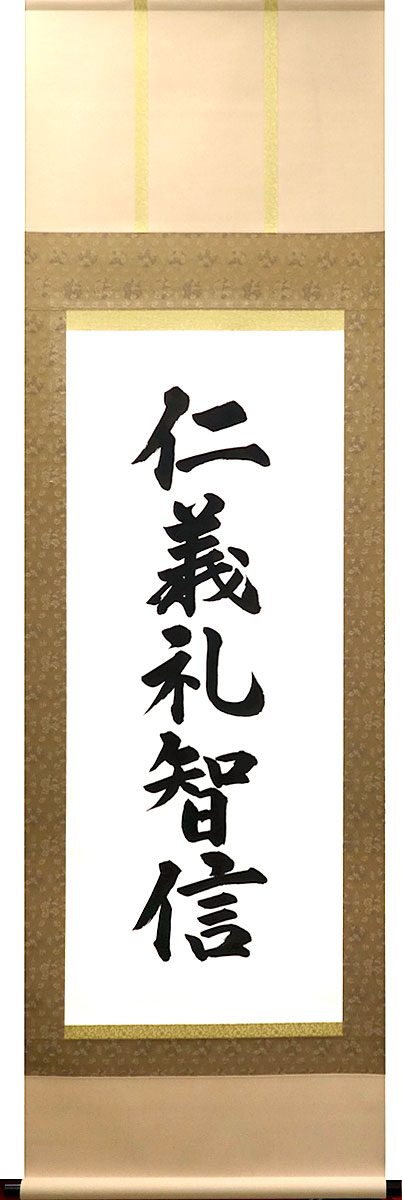 仁義礼智信